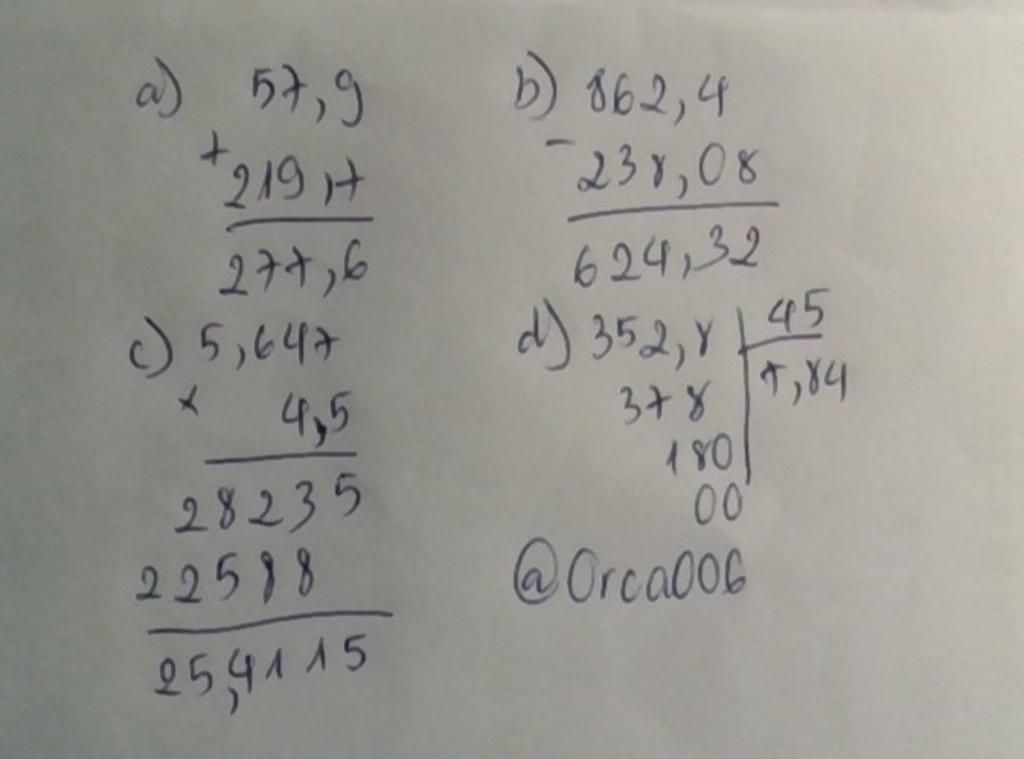 a) 57,9
+
219,7
277,6
b) 862,4
-
238,08
624,32
c) 5,647
x 4,5
28235
22588
25,4115
d) 352,8 45
378 7,84
180
00
@Orca006